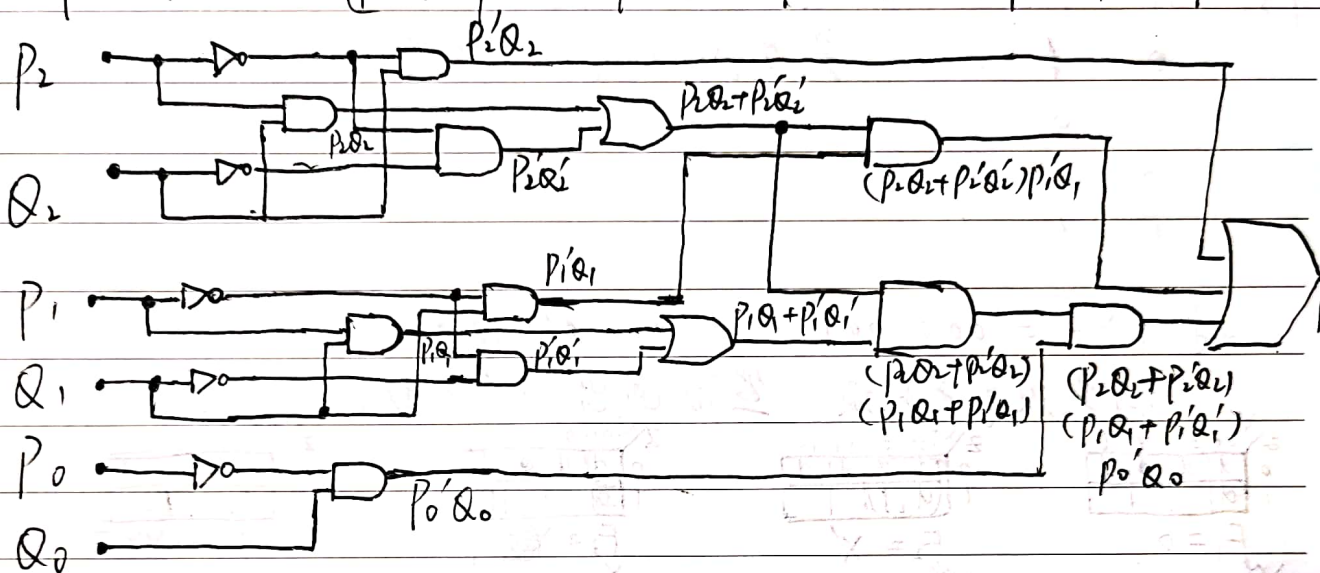 P₂
P₂'Q₂
P₂Q₂
P₂Q₂+P₂'Q₂'
P₂'Q₂'
(P₂Q₂+P₂'Q₂')P₁'Q₁
Q₂
P₁'Q₁
P₁
P₁Q₁
P₁'Q₁'
P₁Q₁+P₁'Q₁'
Q₁
(P₂Q₂+P₂'Q₂)
(P₁Q₁+P₁'Q₁)
(P₂Q₂+P₂'Q₂)
(P₁Q₁+P₁'Q₁')
P₀'Q₀
P₀
P₀'Q₀
Q₀